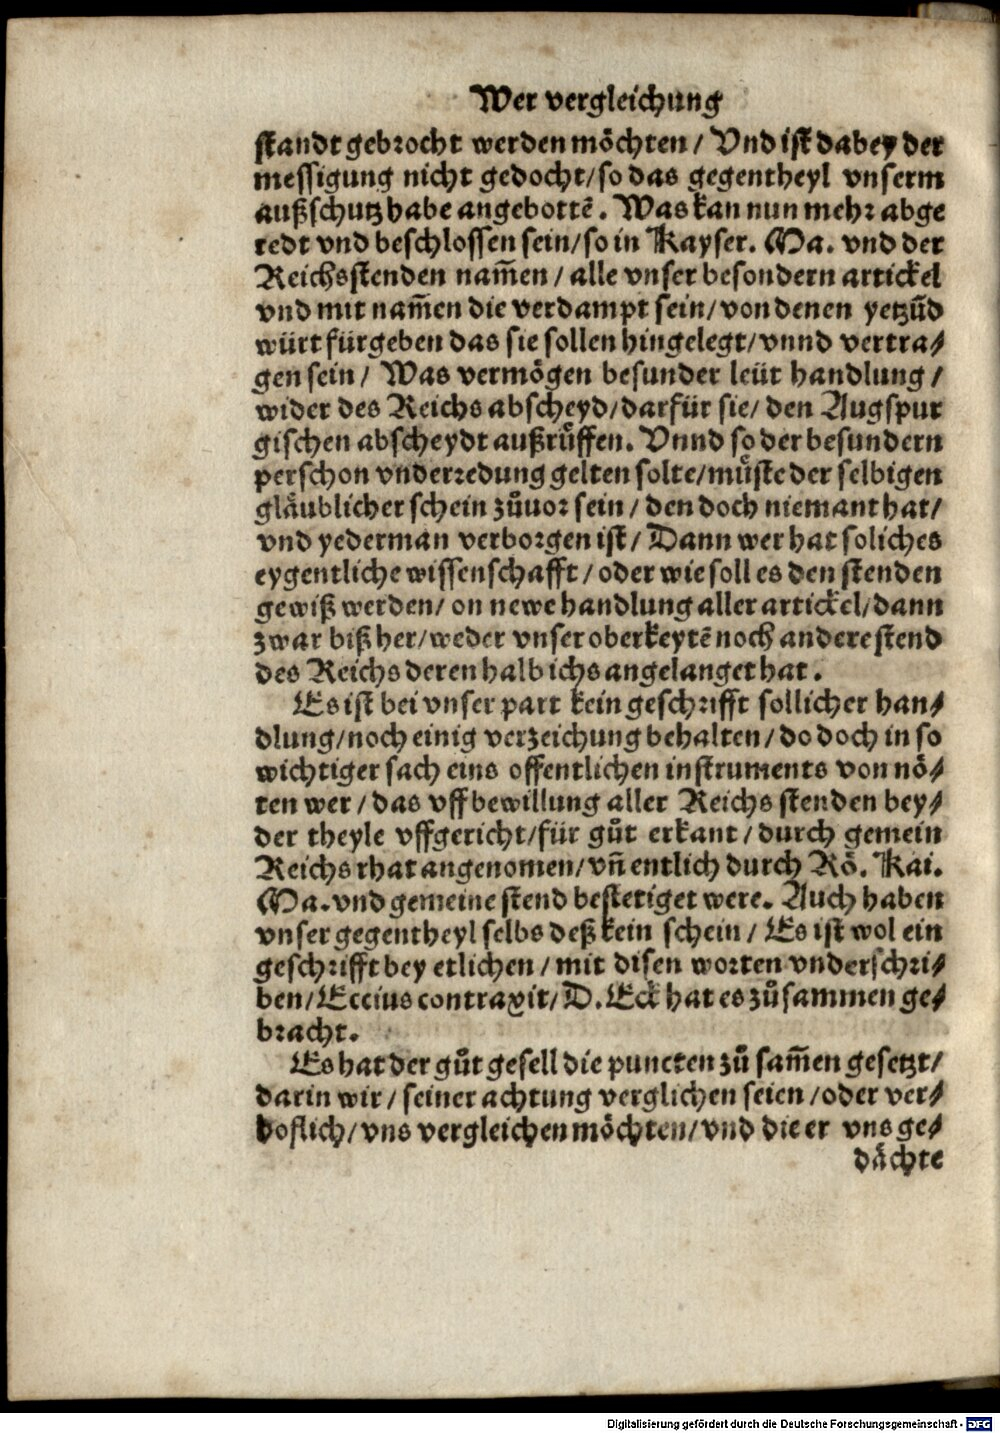 Wer vergleichung
standt gebrocht werden möchten / Vnd ist dabey der
messigung nicht gedocht / so das gegentheyl vnserm
außschutz habe angebottē. Was kan nun mehr abge
redt vnd beschlossen sein / so in Kayser. Ma. vnd der
Reichsstenden nam̄en / alle vnser besondern artickel
vnd mit nam̄en die verdampt sein / von denen yetzūd
würt fürgeben das sie sollen hingelegt / vnnd vertra⸗
gen sein / Was vermögen besunder leüt handlung /
wider des Reichs abscheyd / darfür sie / den Augspur
gischen abscheydt außrůffen. Vnnd so der besundern
perschon vnderredung gelten solte / müste der selbigen
gläublicher schein zůuor sein / den doch niemant hat /
vnd yederman verborgen ist / Dann wer hat soliches
eygentliche wissenschafft / oder wie soll es den stenden
gewiß werden / on newe handlung aller artickel / dann
zwar biß her / weder vnser oberkeytē noch andere stend
des Reichs deren halb ichs angelanget hat.
Es ist bei vnser part kein geschrifft sollicher han⸗
dlung / noch einig verzeichung behalten / do doch in so
wichtiger sach eins offentlichen instruments von nö⸗
ten wer / das vff bewillung aller Reichs stenden bey⸗
der theyle vffgericht / für gůt erkant / durch gemein
Reichs rhat angenomen / vn̄ entlich durch Rö. Kai.
Ma. vnd gemeine stend bestetiget were. Auch haben
vnser gegentheyl selbs deß kein schein / Es ist wol ein
geschrifft bey etlichen / mit disen worten vnderschri⸗
ben / Eccius contraxit / D. Eck hat es zůsammen ge⸗
bracht.
Es hat der gůt gesell die puncten zů sam̄en gesetzt /
darin wir / seiner achtung verglichen seien / oder ver⸗
hoflich / vns vergleichen möchten / vnd die er vns ge⸗
dächte
Digitalisierung gefördert durch die Deutsche Forschungsgemeinschaft - DFG